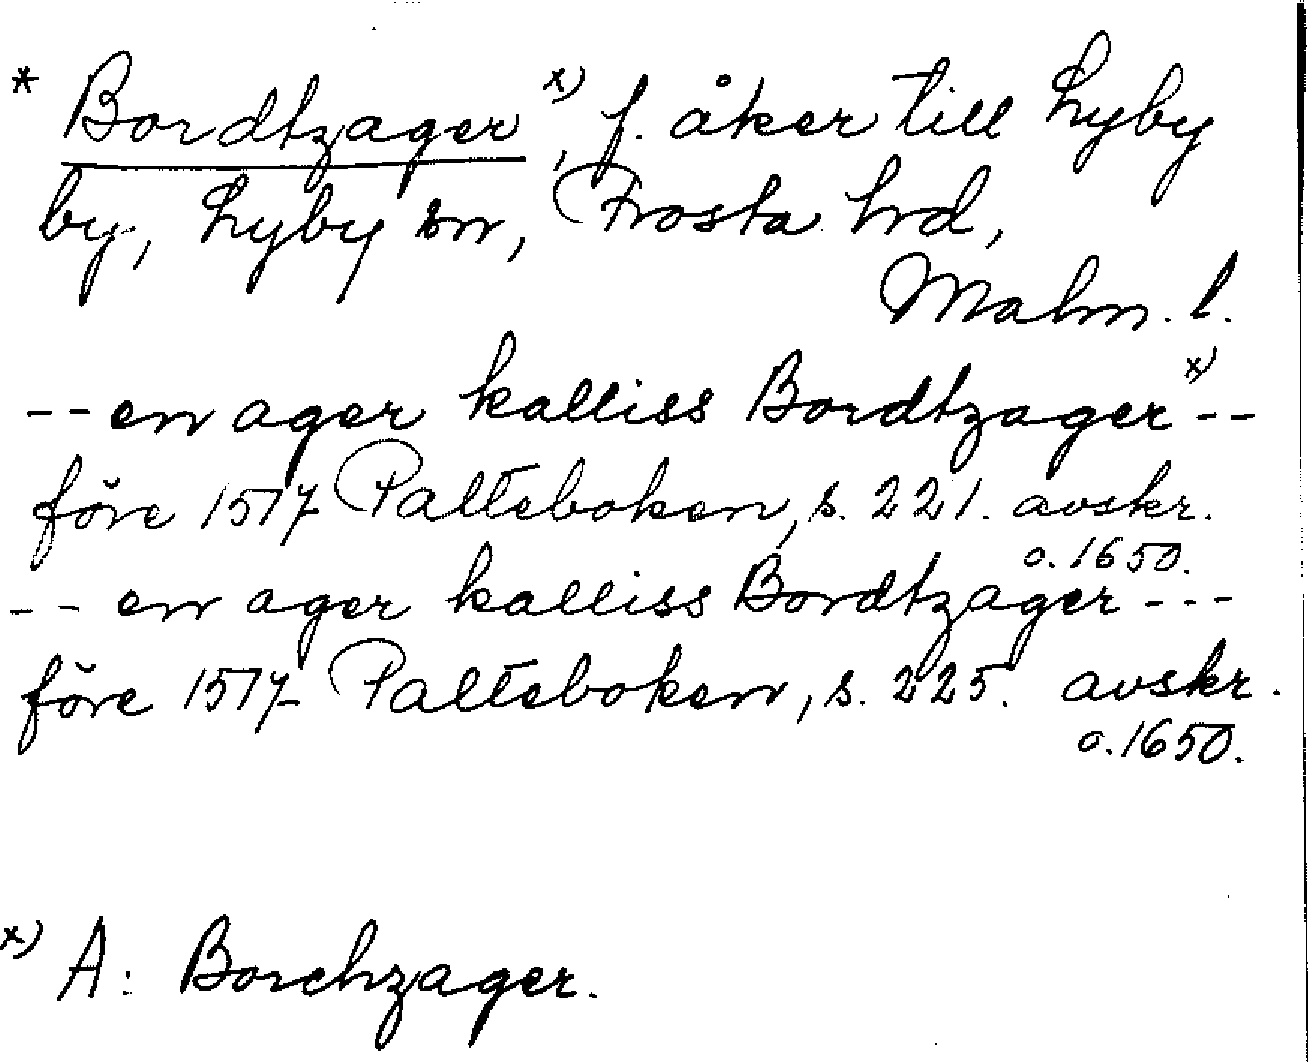 * Bordtzager x), f. åker till Lyby
by, Lyby sn, Frosta hd,
Malm. l.
-- en ager kalliss Bordtzager x) --
före 1517 Palteboken, s. 221. avskr.
o. 1650.
-- en ager kalliss Bordtzager ---
före 1517 Palteboken, s. 225. avskr.
o. 1650.
x) A: Borchzager.